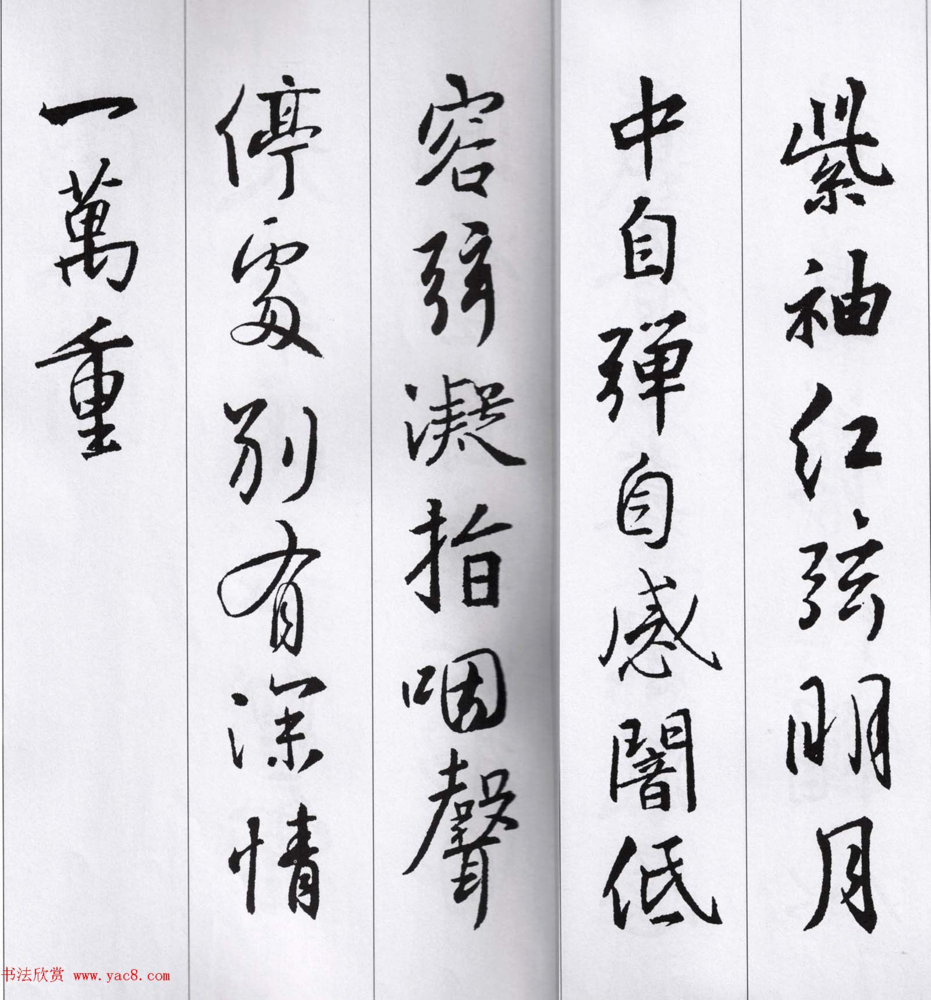 紫袖红弦明月
中自弹自感闇低
容弦凝指咽聲
停處别有深情
一萬重
书法欣赏 www.yac8.com